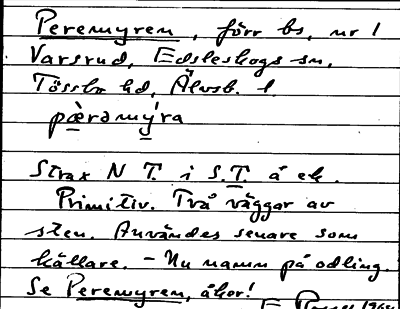 Peremyren, förr bs, nr 1
Varsrud, Edsleskogs sn,
Tössbo hd, Älvsb. l.
pæ̀rəmýra
Strax N T. i S.T. å ek.
Primitiv. Två väggar av
sten. Användes senare som
källare. – Nu namn på odling.
Se Peremyren, åkor!
E 1964